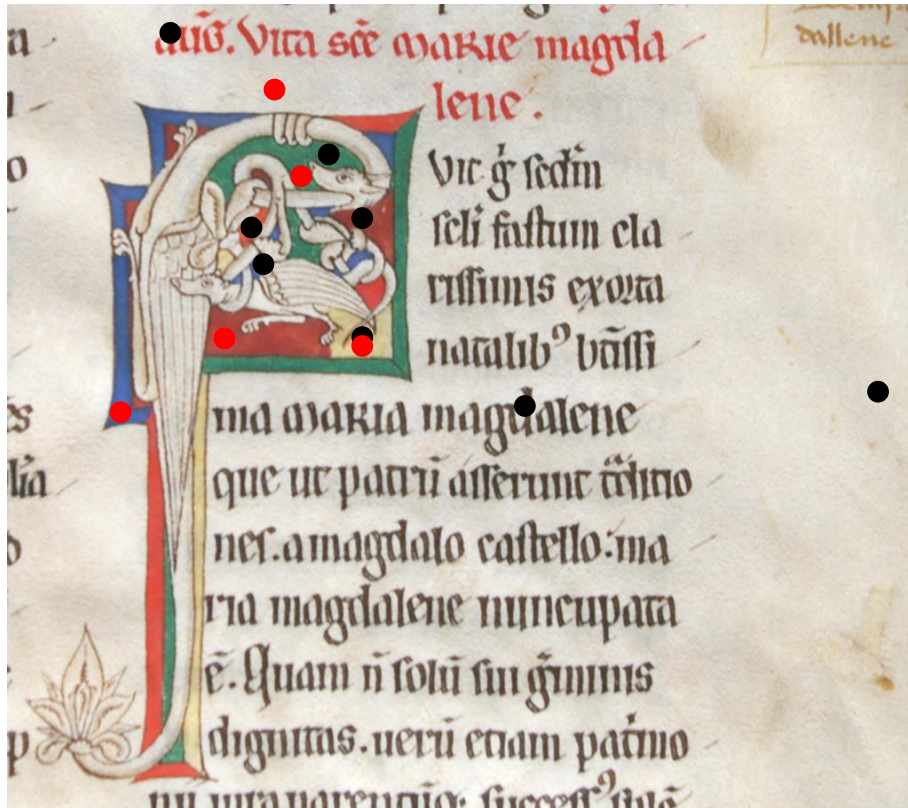 aug̃. Vita sc̃e marie magda
lene.
dallene
Vit g̊ sedm̃
seli fastum cla
rissimis exorta
natalibꝰ bt̃issi
ma maria magdalene
que ut patrũ asserunt t̃ditio
nes. a magdalo castello: ma
ria magdalene nuncupata
ẽ. Quam ñ solũ sui g̃minis
dignitas. uerũ etiam pat̃mo